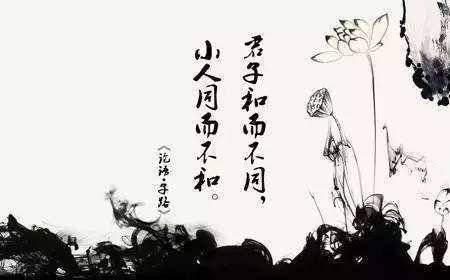 君子和而不同，
小人同而不和。
《论语·子路》